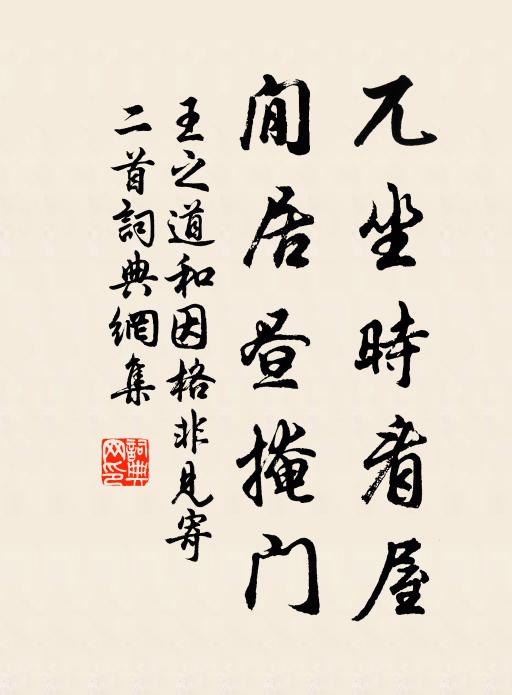 兀坐時看屋
閒居昼掩门
王之道和因格非見寄
二首詞典網集
詞典
网印